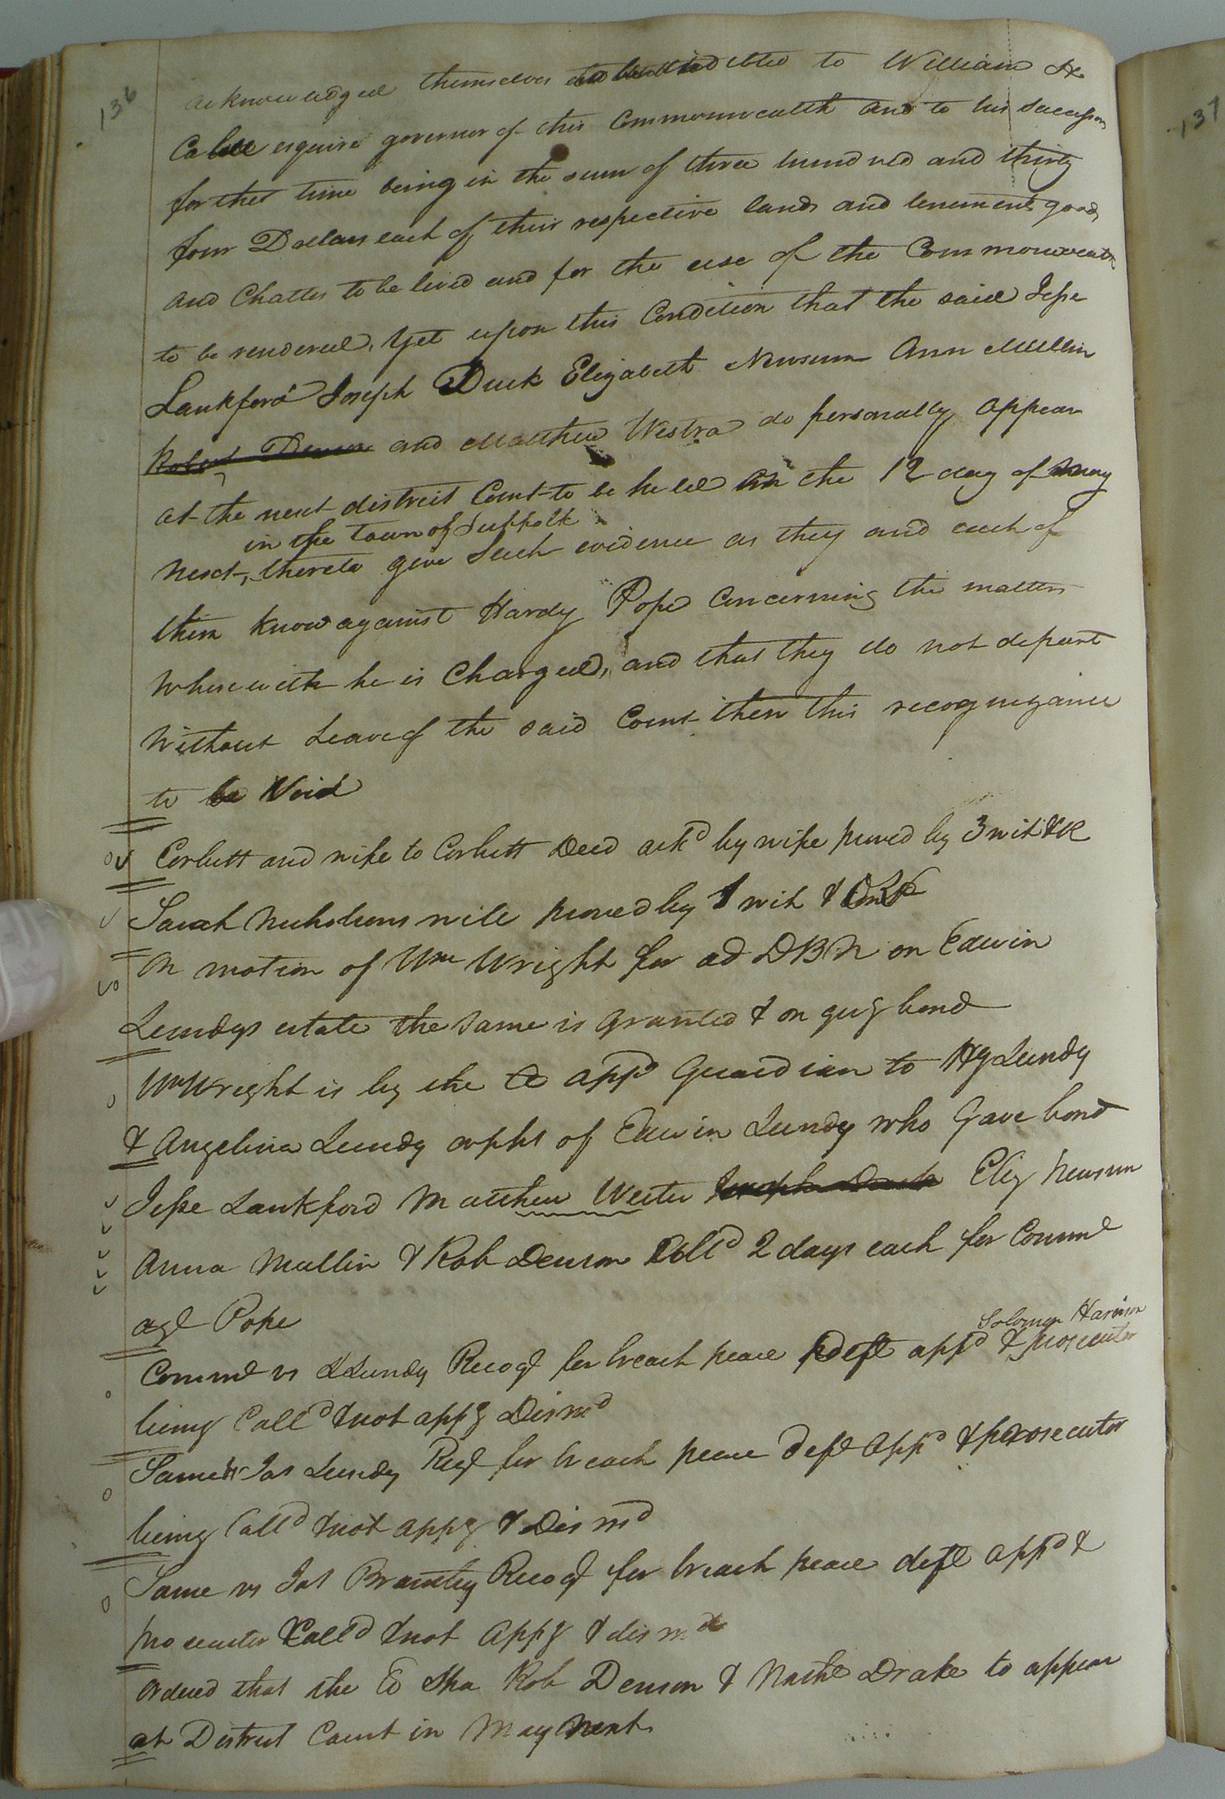 136
137
acknowledged themselves indebted to William H
Cabell esquire governor of this Commonwealth and to his successors
for the time being in the sum of three hundred and thirty
four Dollars each of their respective lands and tenements goods
and Chattes to be livid and for the use of the Commonwealth
to be rendered. Yet upon this Condition that the said Jesse
Lankford Joseph Duck Elizabeth Newsum Ann Mullin
Robert Denson and Matthew Westra do personally appear
at the next district Court to be held on the 12 day of May
in the Town of Suffolk
next, there to give such evidence as they and each of
them know against Hardy Pope Concerning the matters
Wherewith he is Charged, and that they do not depart
Without Leave of the said Court then this recognizance
to be Void
Corbett and wife to Corbett Deed ackd by wife proved by 3 wit & R
Sarah Nicholsons will proved by 1 wit &
On motion of Wm Wright for ad DBN on Edwin
Lundys estate the same is granted & on gvg bond
Wm Wright is by the Co appd Guardian to Hy Lundy
& Angelina Lundy orphs of Edwin Lundy who Gave bond
Jesse Lankford Matthew Wester Joseph Duck Eliz Newsum
Anna Mullin & Rob Denson 2 days each for Commd
agt Pope
Solomon Harison
Commd vs Lundy Recogd for breach peace deft appd & prosecutor
being Calld & not appg Dismd
Same vs Jas Lundy Regd for breach peace deft appd & prosecutor
being Calld & not appg & Dismd
Same vs Jas Brantley Recogd for breach peace deft appd &
prosecutor Calld & not appg & dismd
Ordered that the Co Sba Rob Denson & Nathl Drake to appear
at District Court in May Next